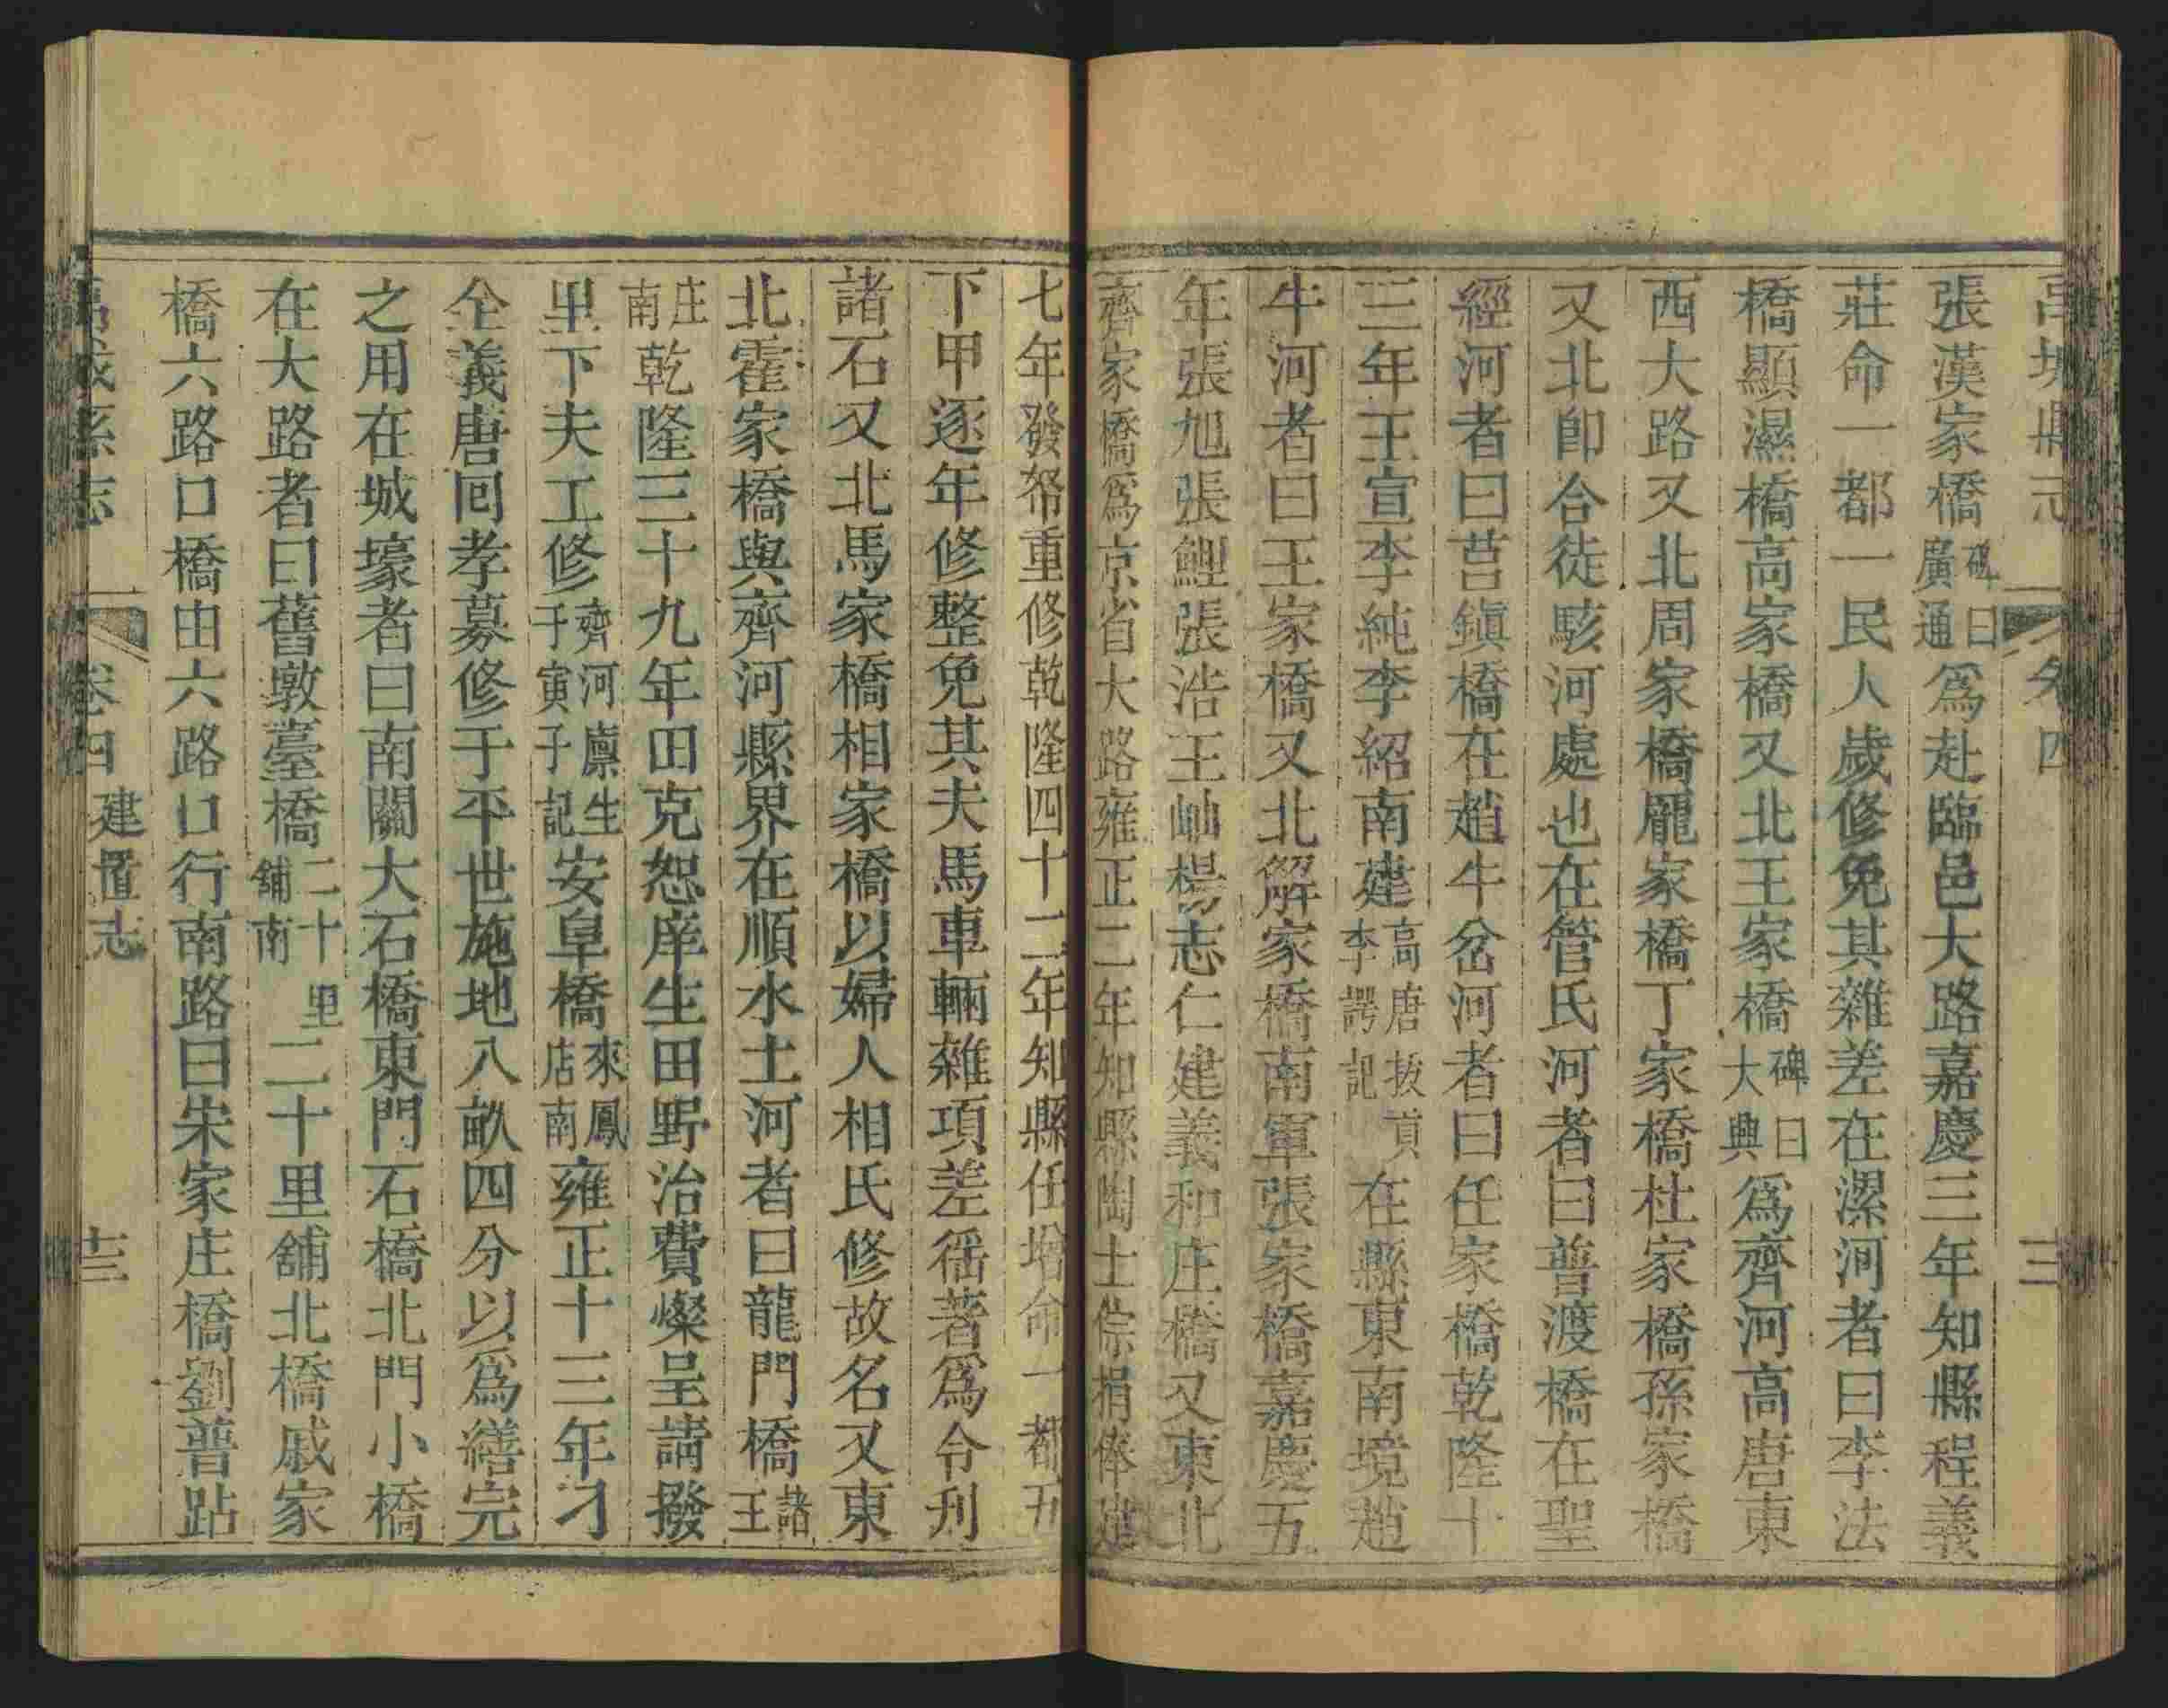 禹城縣志 卷四
張漢家橋碑曰廣通爲赴臨邑大路嘉慶三年知縣程義
莊命一都一民人歲修免其雜差在漯河者曰李法
橋顯濕橋高家橋又北王家橋碑曰大興爲齊河高唐東
西大路又北周家橋龎家橋丁家橋杜家橋孫家橋
又北卽合徒駭河處也在管氏河者曰普渡橋在聖
經河者曰莒鎭橋在趙牛岔河者曰任家橋乾隆十
三年王宣李純李紹南建高唐拔貢李諤記在縣東南境趙
牛河者曰王家橋又北解家橋南軍張家橋嘉慶五
年張旭張鯉張浩王岫楊志仁建義和庄橋又東北
齊家橋爲京省大路雍正二年知縣陶士倧捐俸建
七年發帑重修乾隆四十二年知縣任增命一都五
下甲逐年修整免其夫馬車輛雜項差徭著爲令刋
諸石又北馬家橋相家橋以婦人相氏修故名又東
北霍家橋與齊河縣界在順水土河者曰龍門橋諸王
庄南乾隆三十九年田克恕庠生田野治費燦呈請撥
里下夫工修齊河廪生于寅子記安阜橋來鳳店南雍正十三年刁
仝義唐囘孝募修于平世施地八畝四分以爲繕完
之用在城壕者曰南關大石橋東門石橋北門小橋
在大路者曰舊墩臺橋二十里舖南二十里舖北橋戚家
橋六路口橋由六路口行南路曰宋家庄橋劉普跕
禹城縣志 卷四 建置志 十三